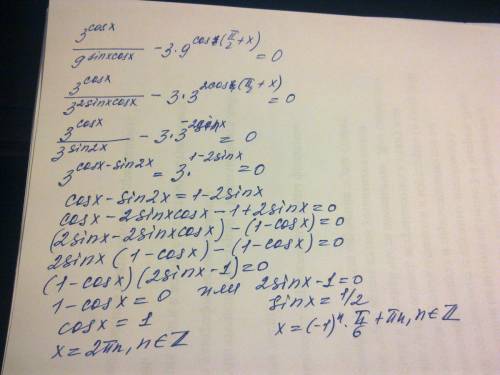 3^cosx / 9^sinxcosx − 3·9^cos(π/2+x) = 0
3^cosx / 3^2sinxcosx − 3·3^2cos(π/2+x) = 0
3^cosx / 3^sin2x − 3·3^−2sinx = 0
3^cosx−sin2x = 3^1−2sinx = 0
cosx − sin2x = 1 − 2sinx
cosx − 2sinxcosx − 1 + 2sinx = 0
(2sinx − 2sinxcosx) − (1−cosx) = 0
2sinx (1−cosx) − (1−cosx) = 0
(1−cosx)(2sinx−1) = 0
1−cosx = 0 или 2sinx−1=0
cosx = 1 sinx = 1/2
x = 2πn, n∈ℤ x = (−1)^n · π/6 + πn, n∈ℤ